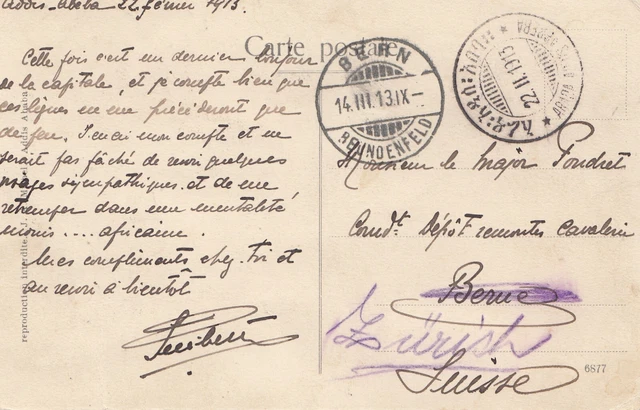 Addis-Abeba 22 février 1913.
Carte postale
Cette fois c'est un dernier bonjour
de la capitale, et je compte bien que
ces lignes ne me précéderont que
de peu. J'en ai mon compte et ne
serait pas fâché de revoir quelques
visages sympathiques et de me
retremper dans une mentalité
moins .... africaine.
Mes compliments chez toi et
au revoir à bientôt
BERN
14.III.13.IX-
BEUNDENFELD
ADDIS ABEBA
22 II 1913
Monsieur le major Poudret
Comdt. Dépôt remontes cavalerie
Berne
Zürich
Suisse
6877
reproduction interdite